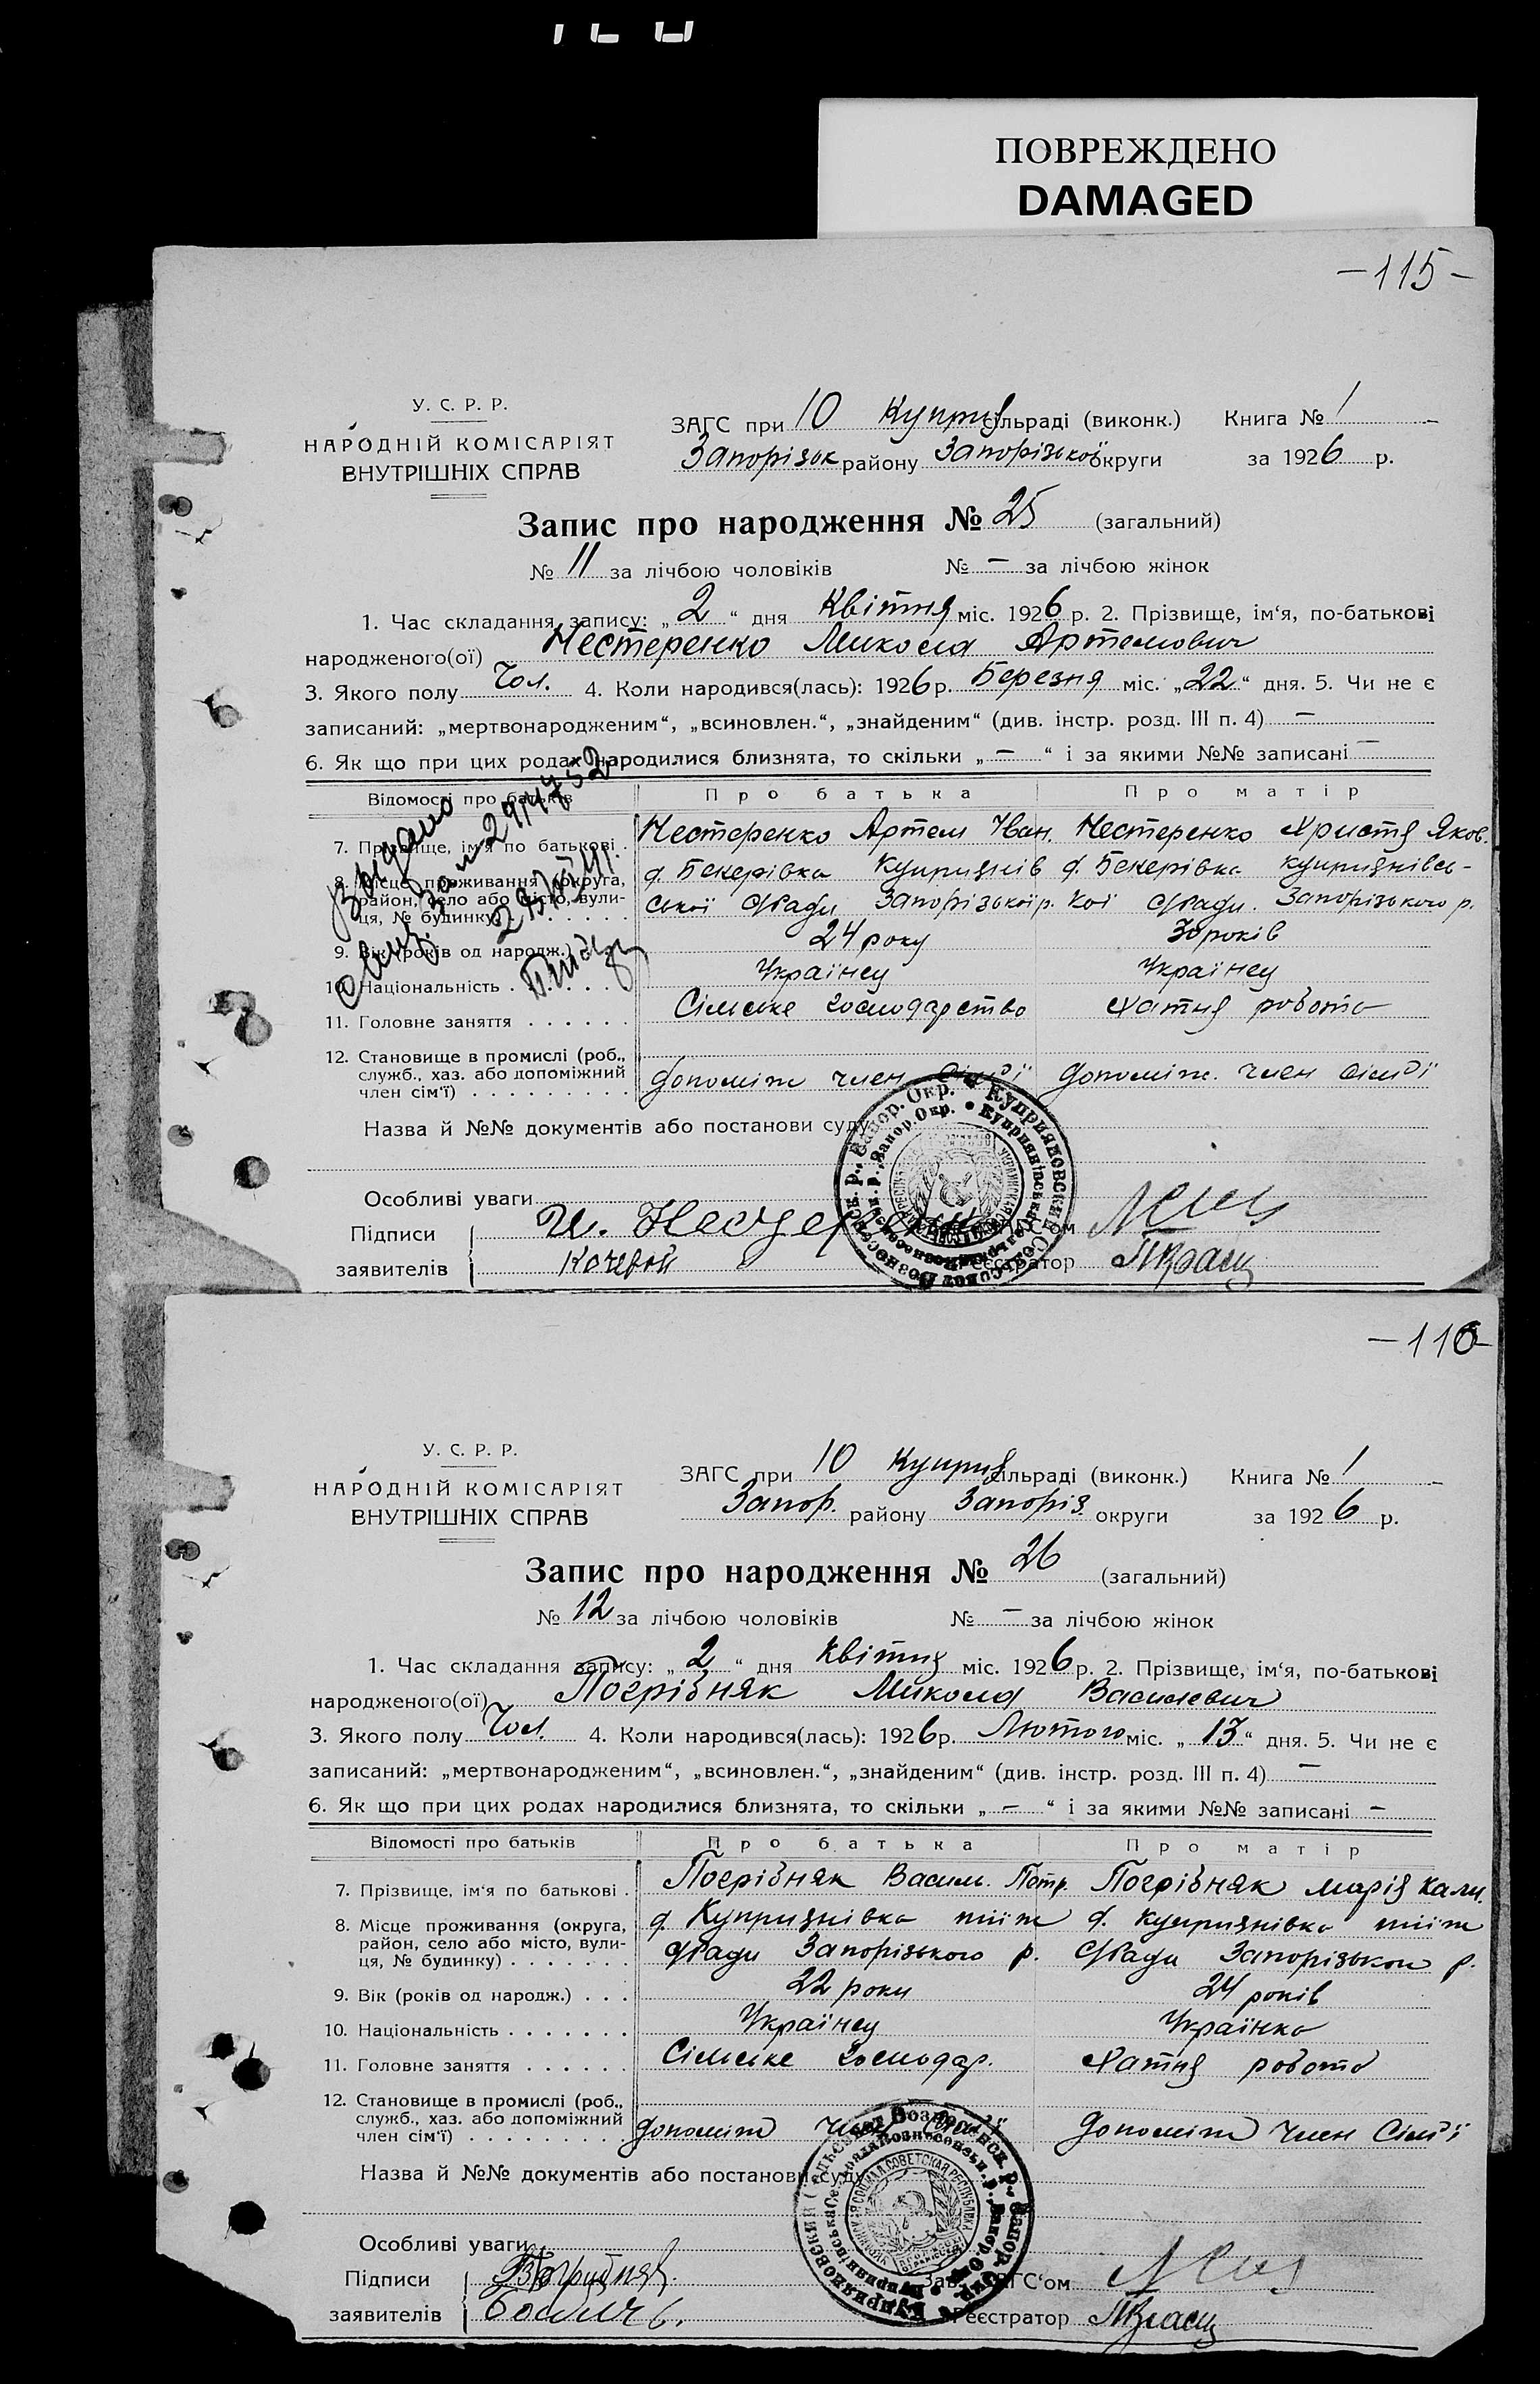 ПОВРЕЖДЕНО
DAMAGED
—115—
У. С. Р. Р.
НАРОДНІЙ КОМІСАРІЯТ
ВНУТРІШНІХ СПРАВ
ЗАГС при 10 Куприя сільраді (виконк.) Книга № 1
Запорізьк району Запорізької округи за 1926 р.
Запис про народження № 25 (загальний)
№ 11 за лічбою чоловіків № — за лічбою жінок
1. Час складання запису: „2“ дня Квітня міс. 1926 р. 2. Прізвище, ім‘я, по-батькові
народженого(ої) Нестеренко Микола Артемович
3. Якого полу Чол. 4. Коли народився(лась): 1926 р. Березня міс. „22“ дня. 5. Чи не є
записаний: „мертвонародженим“, „всиновлен.“, „знайденим“ (див. інстр. розд. III п. 4) —
6. Як що при цих родах народилися близнята, то скільки „—“ і за якими №№ записані —
Відомості про батьків Про батька Про матір
7. Прізвище, ім‘я по батькові . Нестеренко Артем Іван. Нестеренко Христя Яков.
8. Місце проживання (округа,
район, село або місто, вули-
ця, № будинку)
д. Бекерівка Куприянів д. Бекерівка Куприянівсь-
ської с/ради Запорізької р. кої с/ради. Запорізького р.
9. Вік (років од народж.) 24 року 30 років
10. Національність Українец Українец
11. Головне заняття Сільське господарство Хатня робота
12. Становище в промислі (роб.,
служб., хаз. або допоміжний
член сім‘ї) допоміж член сім'ї допоміж. член сім'ї
Видано
Назва й №№ документів або постанови суду
Особливі уваги
Підписи
заявителів
Реєстратор
—116—
У. С. Р. Р.
НАРОДНІЙ КОМІСАРІЯТ
ВНУТРІШНІХ СПРАВ
ЗАГС при 10 Куприя сільраді (виконк.) Книга № 1
Запор. району Запоріз. округи за 1926 р.
Запис про народження № 26 (загальний)
№ 12 за лічбою чоловіків № — за лічбою жінок
1. Час складання запису: „2“ дня Квітня міс. 1926 р. 2. Прізвище, ім‘я, по-батькові
народженого(ої) Погрібняк Микола Василевич
3. Якого полу Чол. 4. Коли народився(лась): 1926 р. Лютого міс. „13“ дня. 5. Чи не є
записаний: „мертвонародженим“, „всиновлен.“, „знайденим“ (див. інстр. розд. III п. 4) —
6. Як що при цих родах народилися близнята, то скільки „—“ і за якими №№ записані —
Відомості про батьків Про батька Про матір
7. Прізвище, ім‘я по батькові . Погрібняк Васил. Петр. Погрібняк Марія Кали.
8. Місце проживання (округа,
район, село або місто, вули-
ця, № будинку)
д. Куприянівка тиїж д. Куприянівка тиїж
с/ради Запорізького р. с/ради Запорізького р.
9. Вік (років од народж.) 22 роки 24 років
10. Національність Українец Українка
11. Головне заняття Сільське господар. Хатня робота
12. Становище в промислі (роб.,
служб., хаз. або допоміжний
член сім‘ї) допоміж член сім'ї допоміж член сім'ї
Назва й №№ документів або постанови суду
Особливі уваги
Підписи
заявителів
Зав. ЗАГС‘ом
Реєстратор